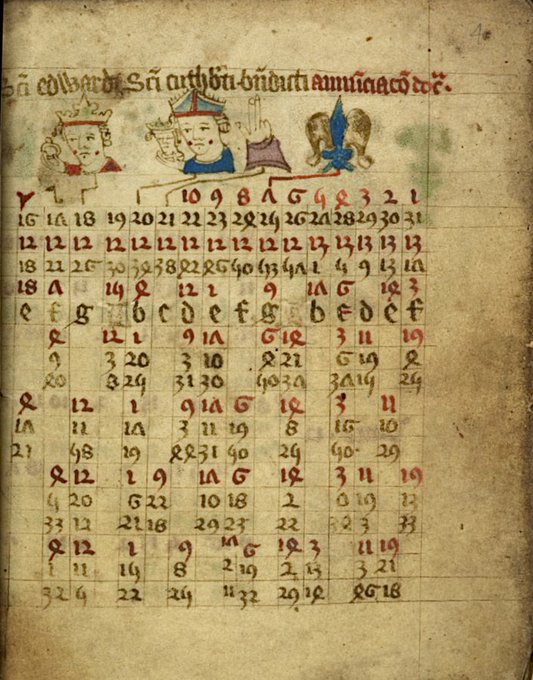 Sci edwardi Sci cuthbti bndicti annuciacō
10 9 8 7 6 5 4 3 2 1
16 17 18 19 20 21 22 23 24 25 26 27 28 29 30 31
12 12 12 12 12 12 12 12 12 12 12 13 13 13 13 13
18 22 26 30 34 38 42 46 50 53 57 1 5 9 13 17
18 7 15 4 12 1 9 17 6 14 3
e f g A b c d e f g A b c d e f
4 12 1 9 17 6 14 3 11 19
9 3 20 3 10 4 21 6 19 4
40 8 25 31 30 50 37 37 15 25
4 12 1 9 17 6 14 3 11
17 11 17 3 11 19 8 16 10
21 58 19 44 31 50 25 50 29
4 12 1 9 17 6 14 3 11 19
5 20 6 22 10 18 2 0 19 13
33 12 21 18 29 25 22 34 3 33
4 12 1 9 17 6 14 3 11 19
1 11 15 8 2 19 2 13 3 21
32 5 22 25 11 32 29 14 46 18